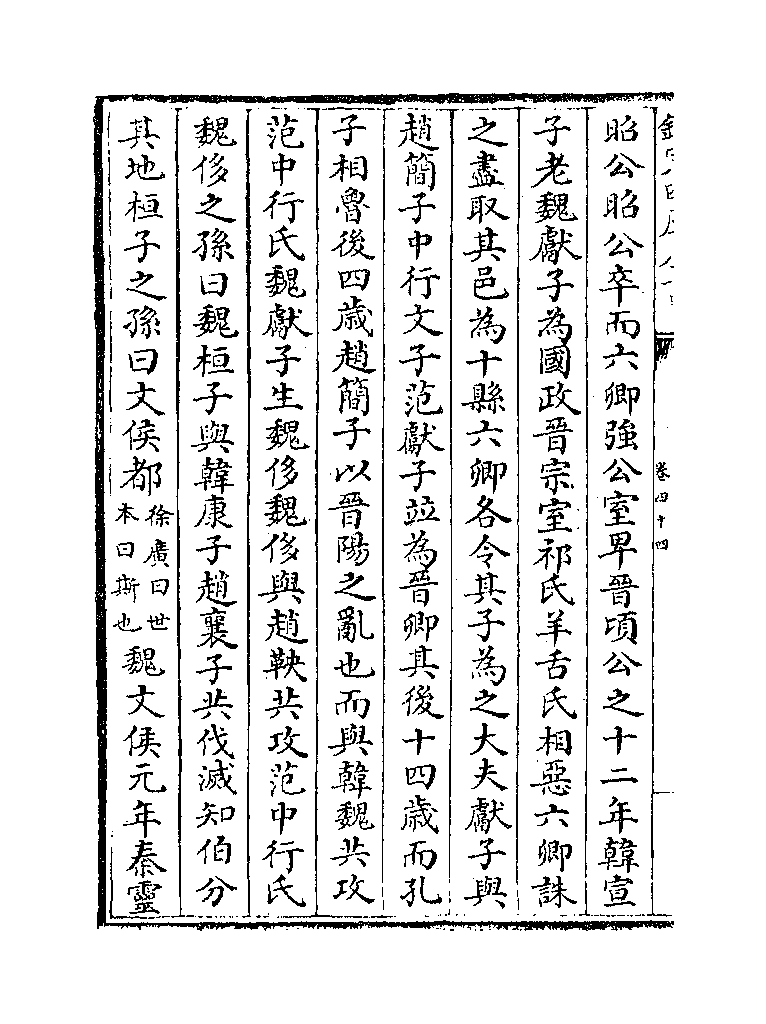 卷四十四
昭公昭公卒而六卿強公室卑晉頃公之十二年韓宣
子老魏獻子為國政晉宗室祁氏羊舌氏相惡六卿誅
之盡取其邑為十縣六卿各令其子為之大夫獻子與
趙簡子中行文子范獻子竝為晉卿其後十四歲而孔
子相魯後四歲趙簡子以晉陽之亂也而與韓魏共攻
范中行氏魏獻子生魏侈魏侈與趙鞅共攻范中行氏
魏侈之孫曰魏桓子與韓康子趙襄子共伐滅知伯分
其地桓子之孫曰文侯都徐廣曰世本曰斯也魏文侯元年秦靈